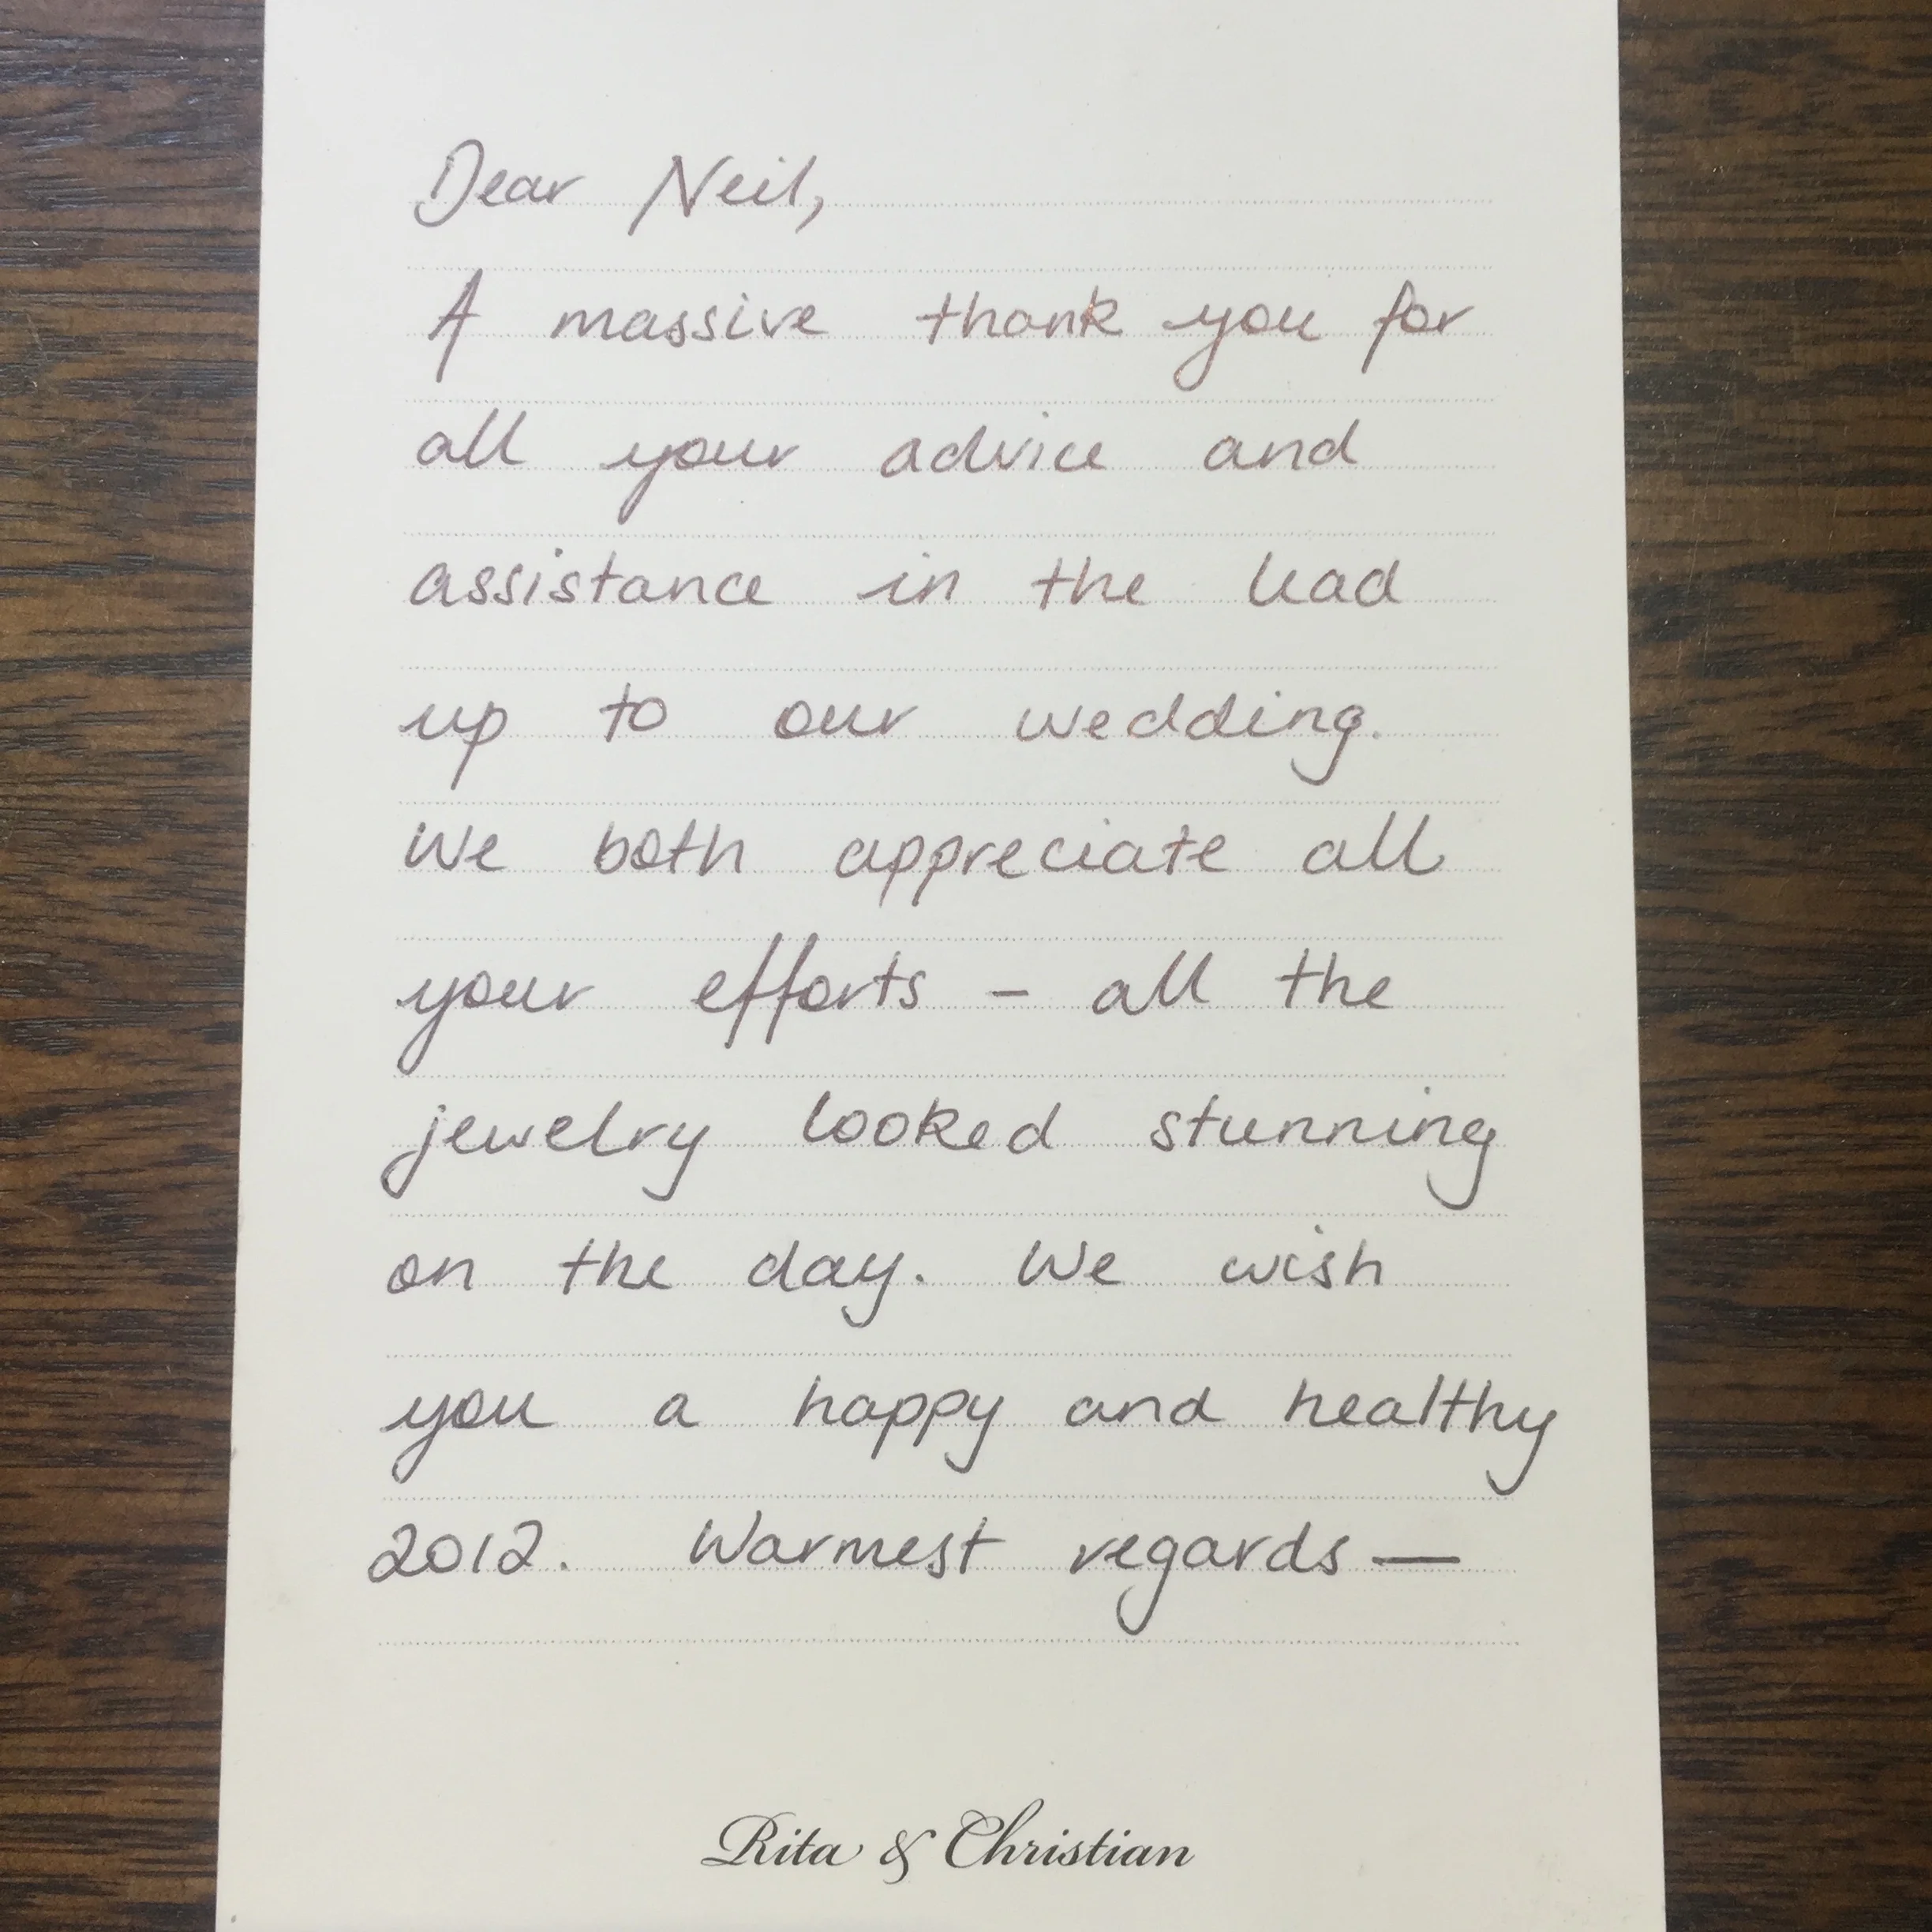 Dear Neil,
A massive thank you for
all your advice and
assistance in the lead
up to our wedding.
We both appreciate all
your efforts - all the
jewelry looked stunning
on the day. We wish
you a happy and healthy
2012. Warmest regards —
Rita & Christian